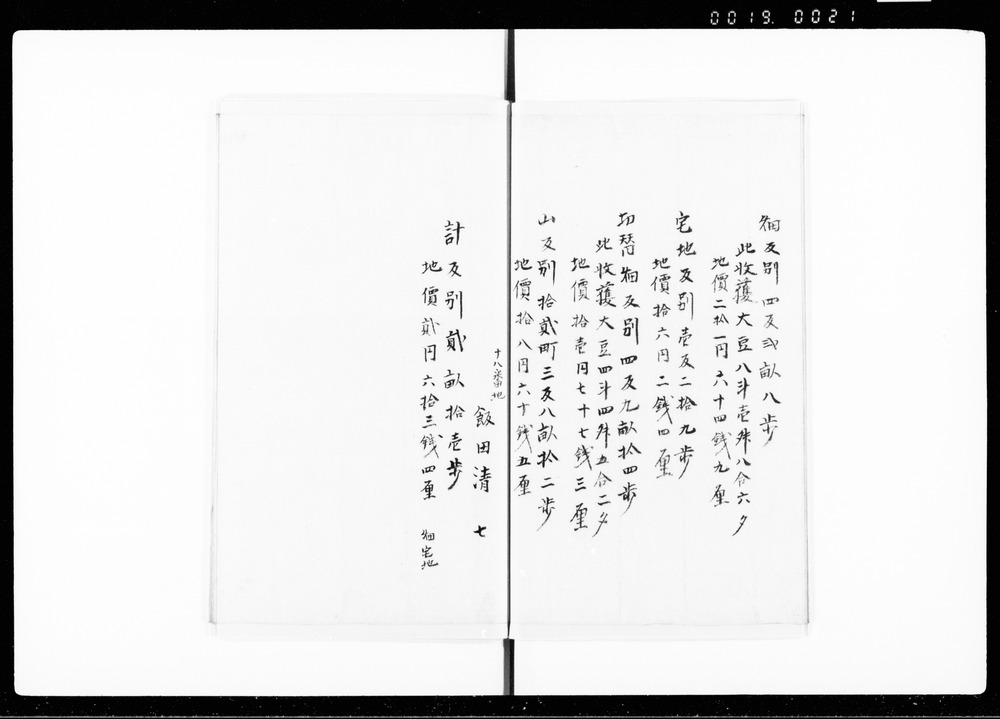 0019. 0021
畑反別四反弐畝八歩
此收獲大豆八斗壱舛八合六夕
地價二拾一円六十四銭九厘
宅地反別壱反二拾九歩
地價拾六円二銭四厘
切替畑反別四反九畝拾四歩
此收獲大豆四斗四舛五合二夕
地價拾壱円七十七銭三厘
山反別拾貳町三反八畝拾二歩
地價拾八円六十銭五厘
十八番地
飯田清七
計反別貳畝拾壱歩
地價貳円六拾三銭四厘
畑宅地